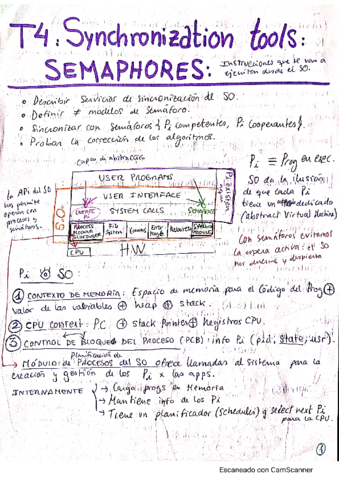 T4: Synchronization tools:
SEMAPHORES:
Instrucciones que se van a
ejecutar desde el SO.
• Describir Servicios de sincronización del SO.
• Definir ≠ modelos de Semáforo.
• Sincronizar con Semáforos { Pi competentes, Pi Cooperantes }.
• Probar la corrección de los algoritmos.
Capas de abstracción
La API del SO
nos permite
USER PROGRAMS
USER INTERFACE
SYSTEM CALLS
S.O.
PROCESS
MODULE
SCHEDULER
File
System
Comms
CPU
HW
Pi ≡ Prog en exec.
SO da la ilusión
de que cada Pi
tiene un dedicado
(Abstract Virtual Machine)
Con semáforos evitamos
la espera activa: el SO
nos duerme y despierta
Pi SO:
① CONTEXTO DE MEMORIA: Espacio de memoria para el Código del Prog +
valor de las variables + heap + stack.
② CPU CONTEXT: PC + stack Pointer + Registros CPU.
③ CONTROL DE BLOQUEO DEL PROCESO (PCB): info Pi (pid, state, usr).
planificación de
→ Módulo de Procesos del SO ofrece llamadas al sistema para la
creación y gestión de los Pi x las apps.
INTERNAMENTE
→ Carga progs en Memoria
→ Mantiene info de los Pi
→ Tiene un planificador (Scheduler) y select next Pi
para la CPU.
①
Escaneado con CamScanner